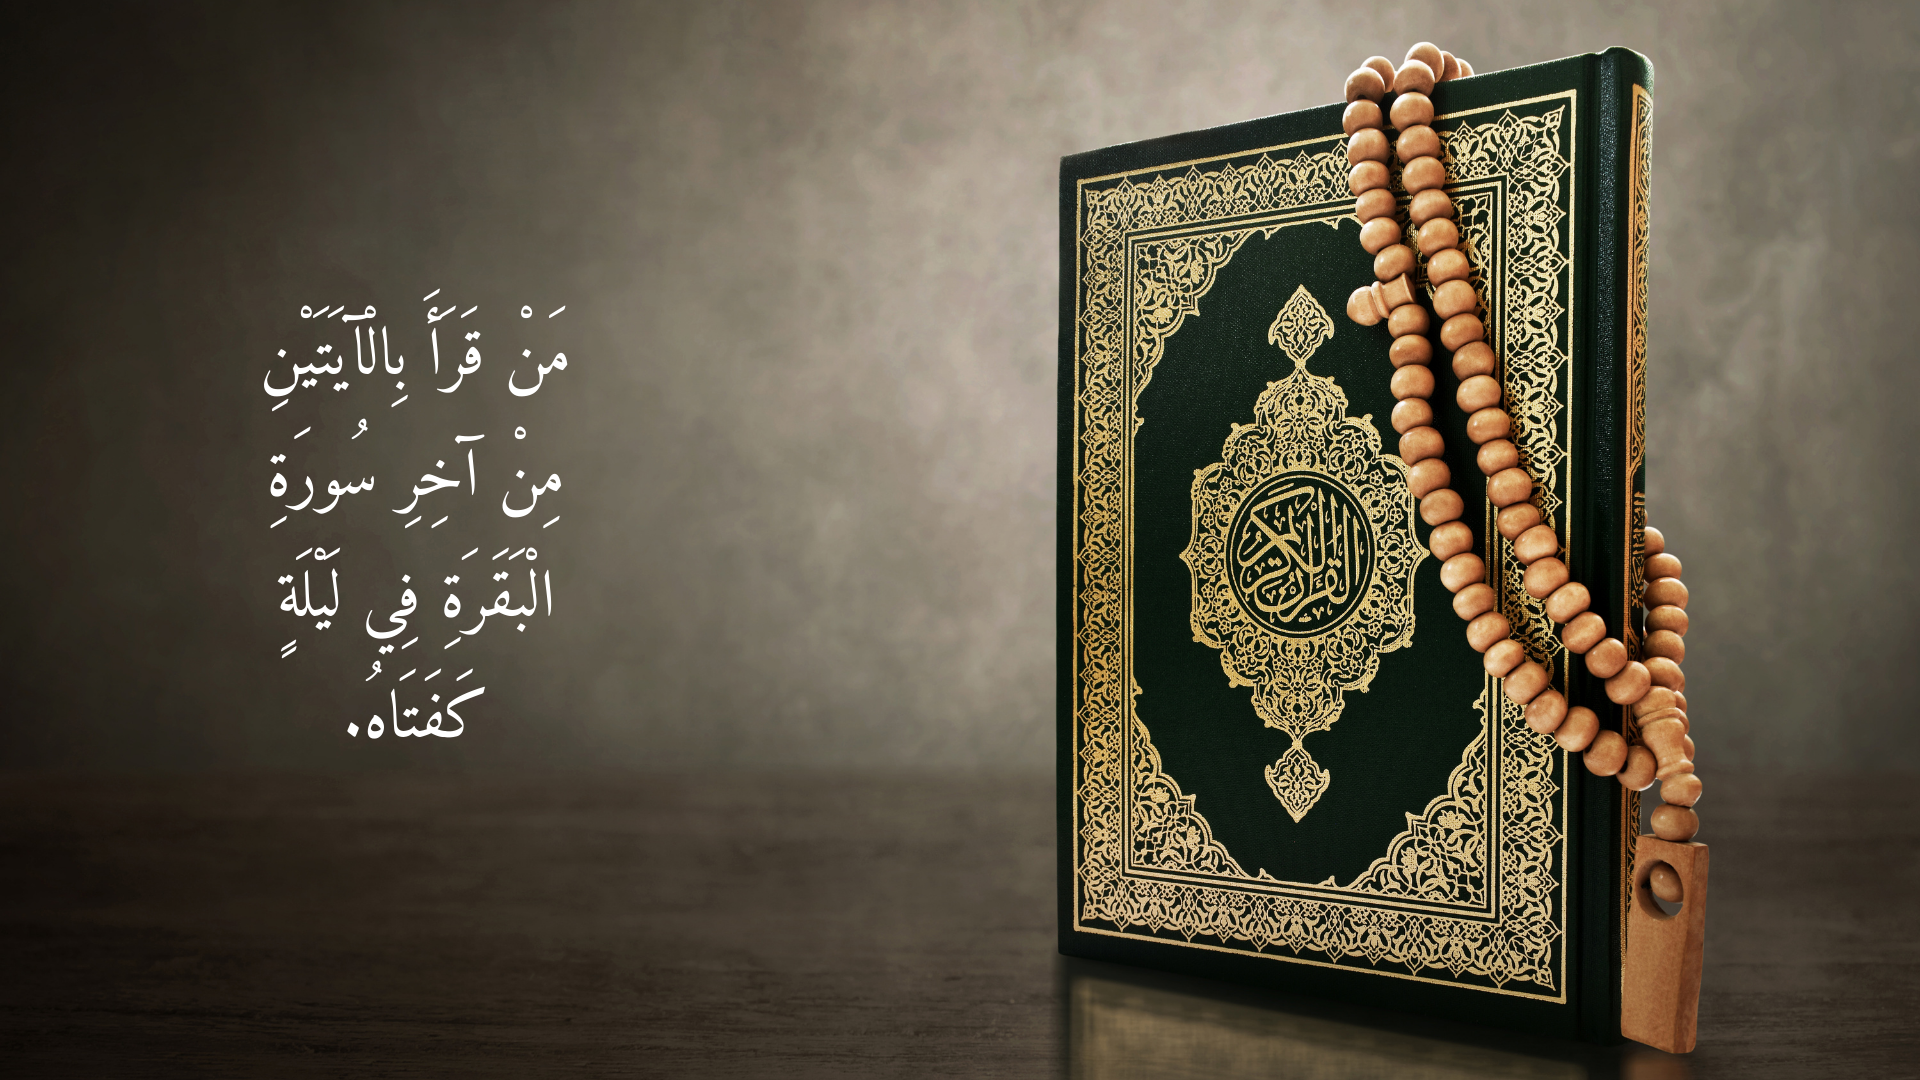 مَنْ قَرَأَ بِالْآيَتَيْنِ
مِنْ آخِرِ سُورَةِ
الْبَقَرَةِ فِي لَيْلَةٍ
كَفَتَاهُ.
القرآن الكريم